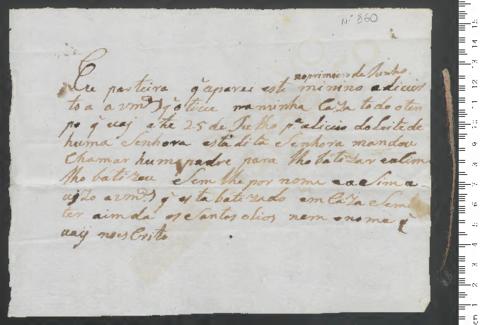 Nº 860
no primeiro de Junho
Eu parteira q̃ aparei este minino adicios
to a a vm.ᶜᵉ q̃ o tive na minha Caza todo o tem
po q̃ vai athe 25 de Julho p.ᵃ alicio do Leite de
huma Senhora esta dita Senhora mandou
Chamar hum padre para lho batizar e a sim
lho batizou Sem lhe por nome e a Sim a
vizo a vm.ᶜᵉ q̃ esta batizado em Caza Sem
ter ainda os Santos olios nem o nome q̃
vaij no esCrito